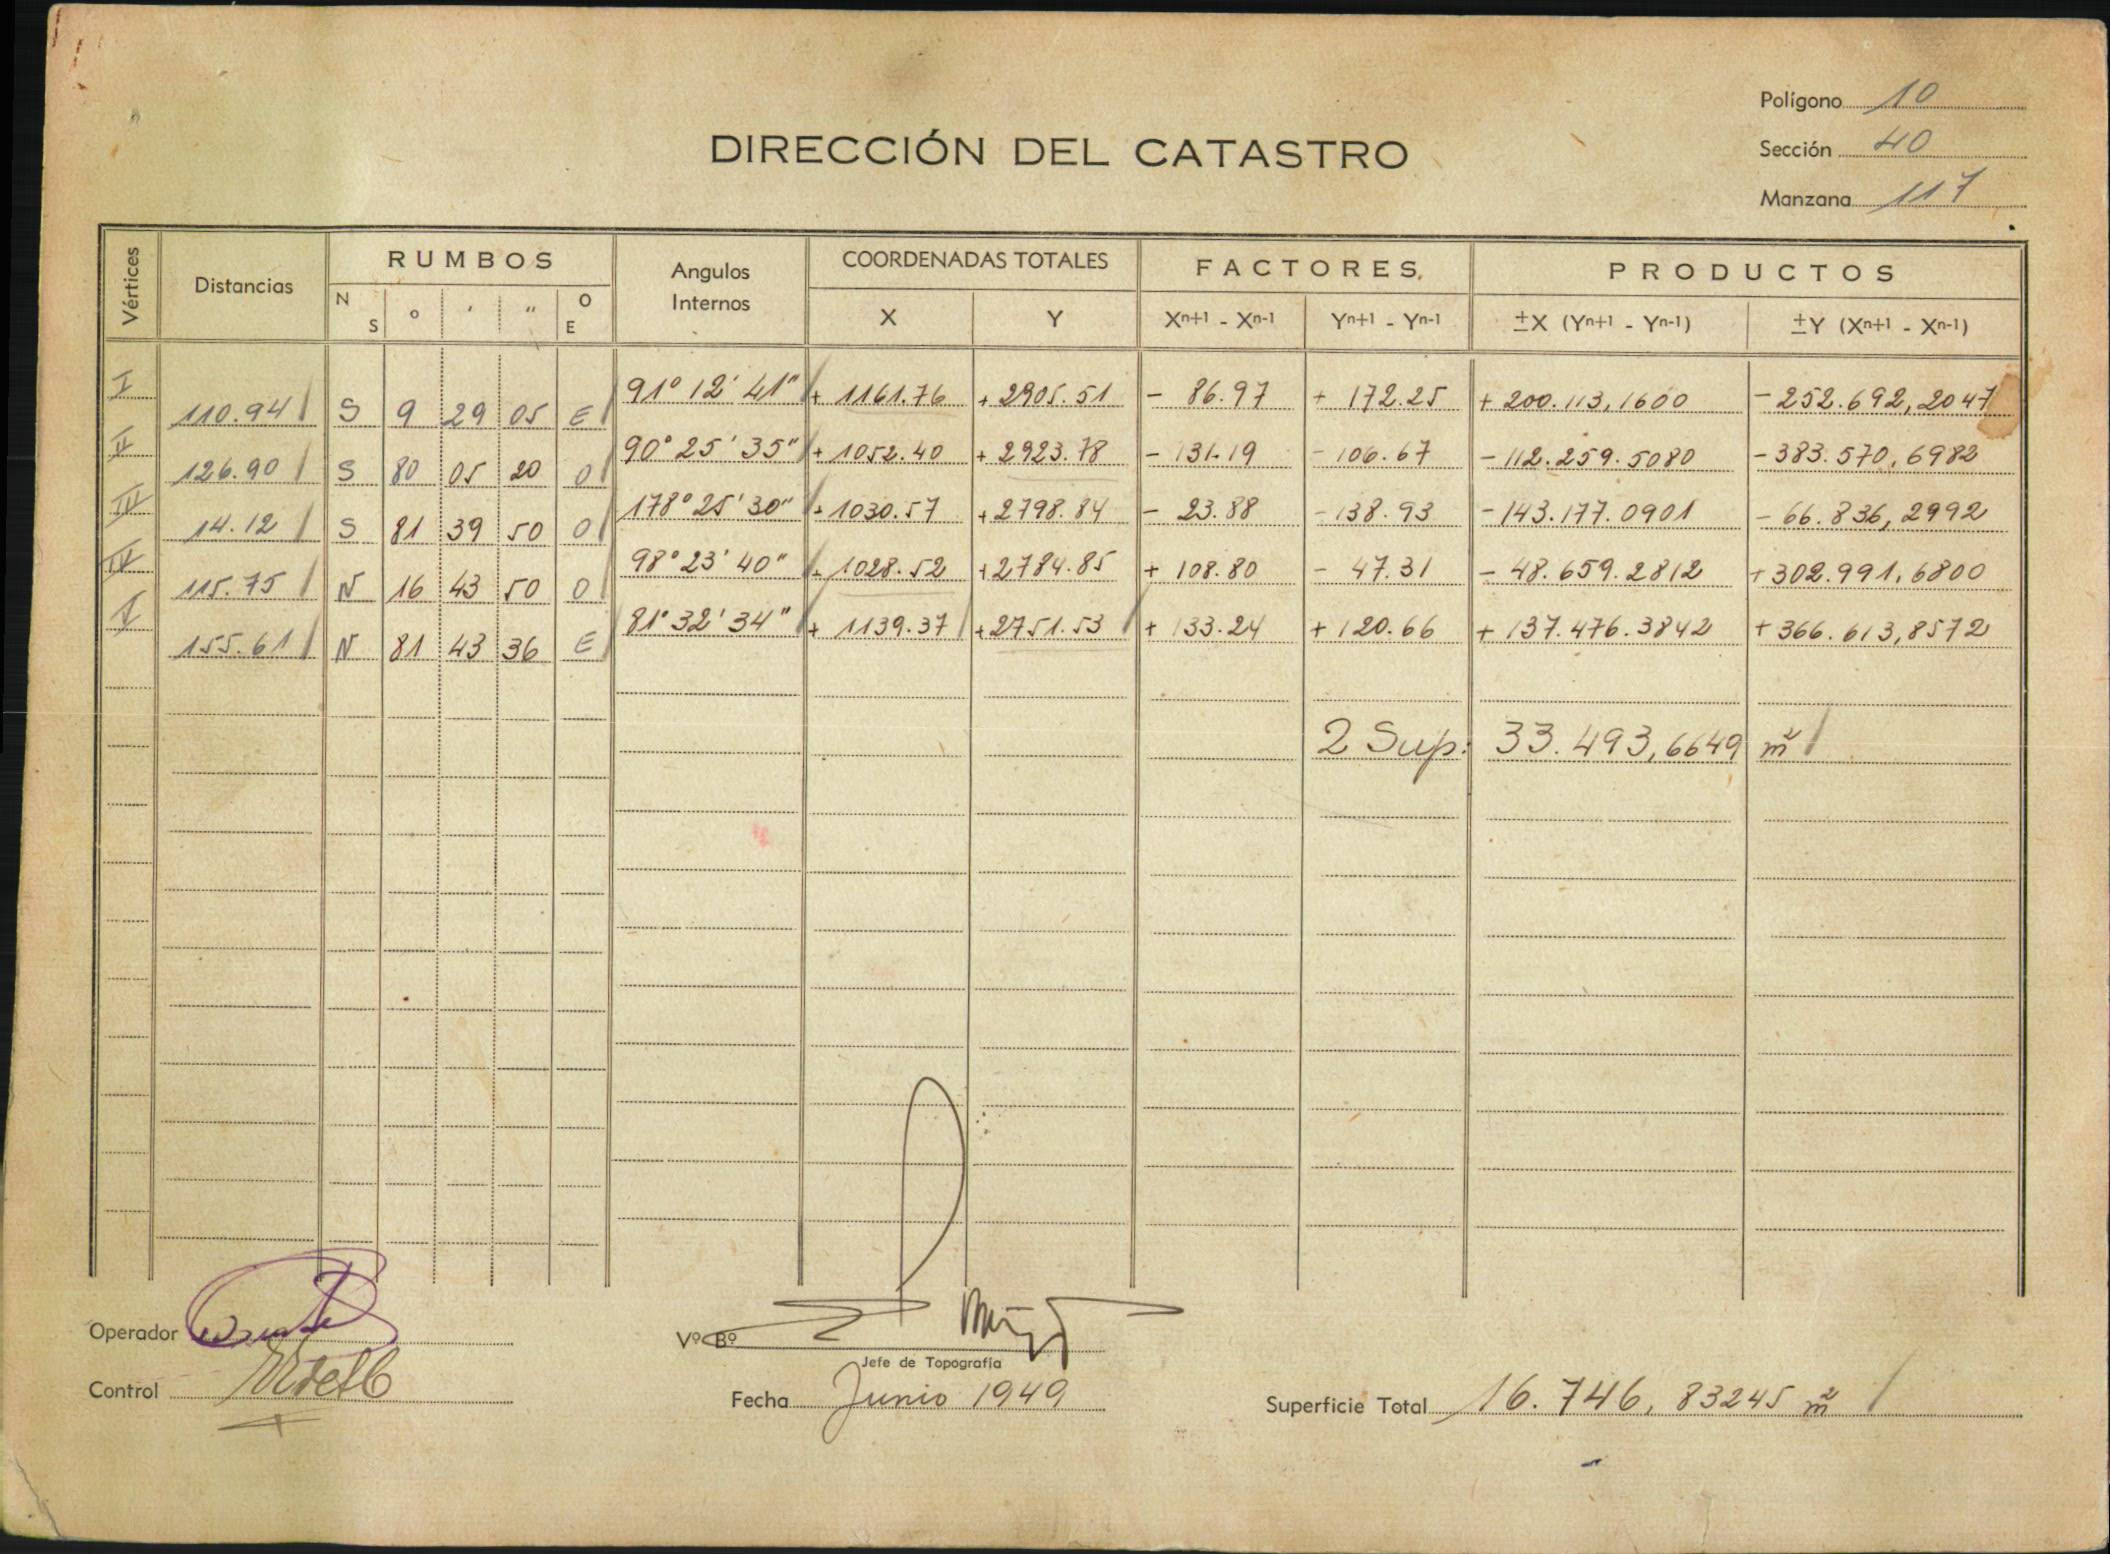 Polígono 10
DIRECCIÓN DEL CATASTRO
Sección 40
Manzana 117
Vértices Distancias RUMBOS Angulos Internos COORDENADAS TOTALES FACTORES. PRODUCTOS
N S ° ′ ″ O E X Y Xn+1 - Xn-1 Yn+1 - Yn-1 ±X (Yn+1 - Yn-1) ±Y (Xn+1 - Xn-1)
I 91° 12' 41" + 1161.76 + 2905.51 - 86.97 + 172.25 + 200.113,1600 - 252.692,2047
110.94 S 9 29 05 E
II 90° 25' 35" + 1052.40 + 2923.78 - 131.19 - 106.67 - 112.259.5080 - 383.570,6982
126.90 S 80 05 20 O
III 178° 25' 30" + 1030.57 + 2798.84 - 23.88 - 138.93 - 143.177.0901 - 66.836,2992
14.12 S 81 39 50 O
IV 98° 23' 40" + 1028.52 + 2784.85 + 108.80 - 47.31 - 48.659.2812 + 302.991,6800
115.75 N 16 43 50 O
V 81° 32' 34" + 1139.37 + 2751.53 + 133.24 + 120.66 + 137.476.3842 + 366.613,8572
155.61 N 81 43 36 E
2 Sup: 33.493,6649 m²
Operador
Vº Bº
Jefe de Topografía
Control
Fecha Junio 1949
Superficie Total 16.746,83245 m²